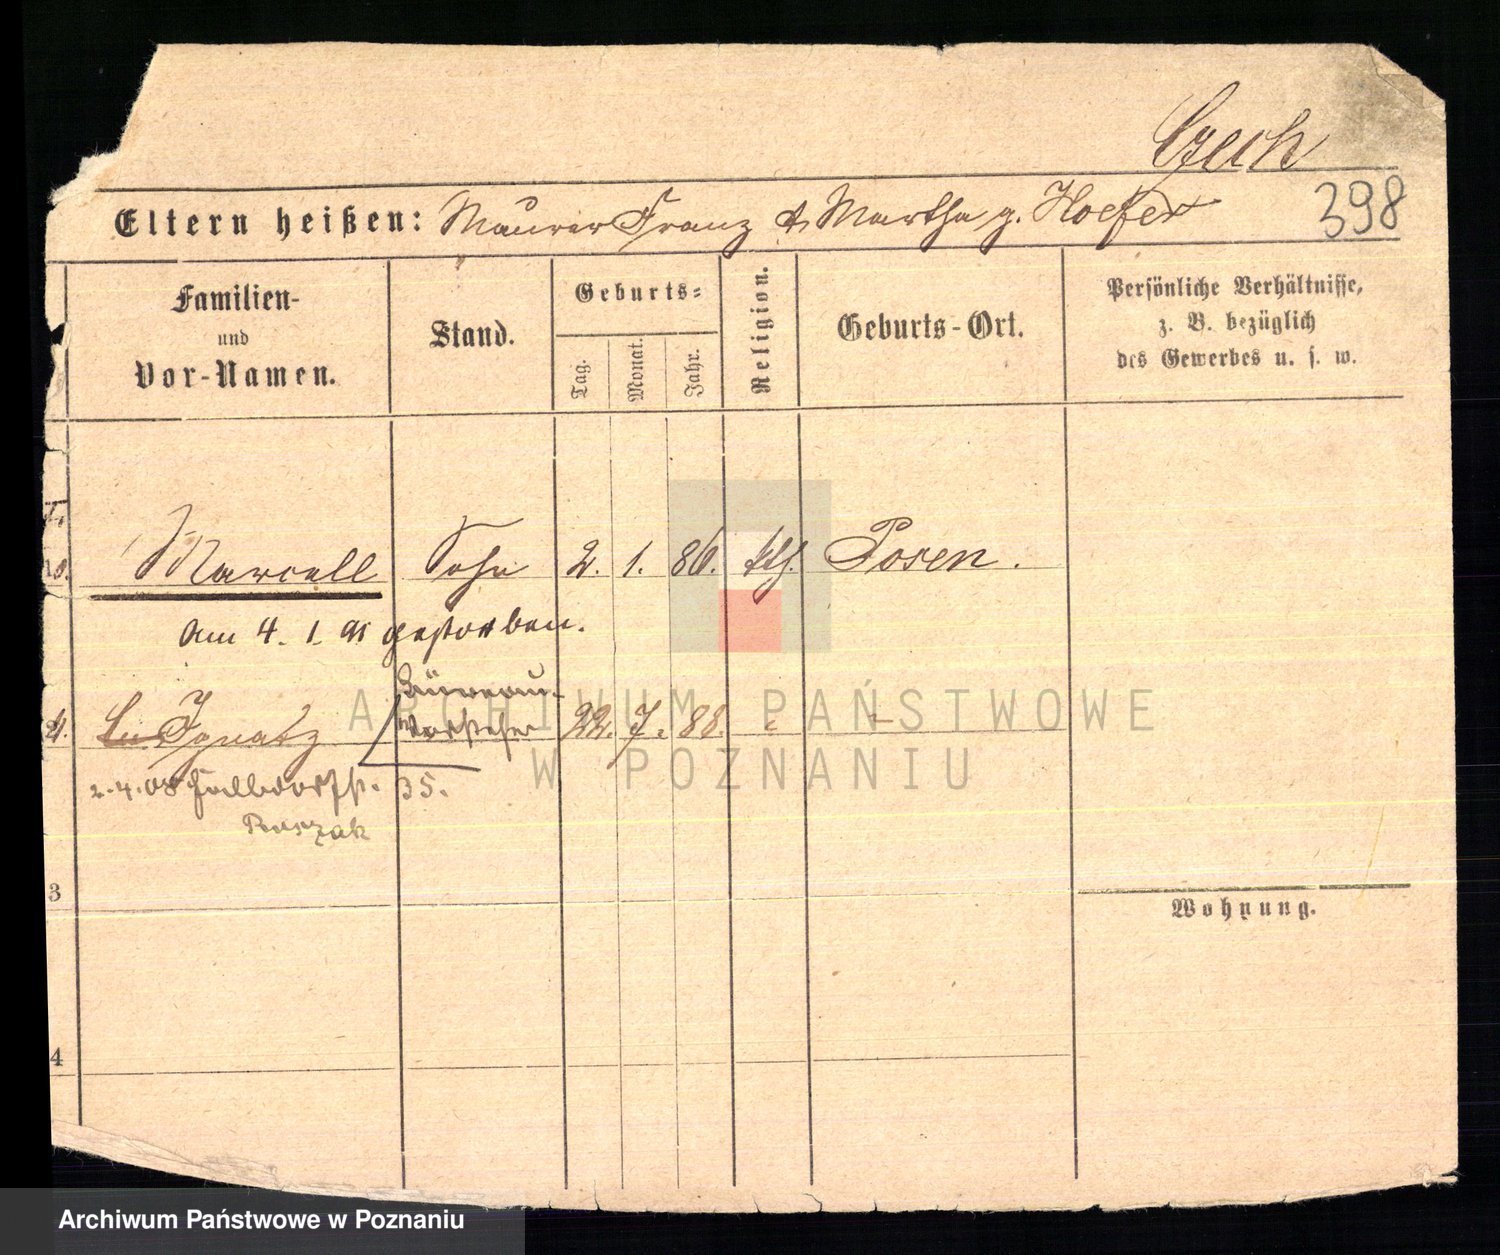 Czech
398
Eltern heißen: Maurer Franz & Martha g. Hoefer
Familien-
und
Vor-Namen.
Stand.
Geburts-
Tag.
Monat.
Jahr.
Religion.
Geburts-Ort.
Persönliche Verhältnisse,
z. B. bezüglich
des Gewerbes u. s. w.
Marcell Sohn 2. 1. 86. kth. Posen.
am 4. 1. 91 gestorben.
Büreau-
Ignatz Vorsteher 22. 7. 88. "
2.4.08 35.
Ruszak
3
Wohnung.
4
ARCHIWUM PAŃSTWOWE
W POZNANIU
Archiwum Państwowe w Poznaniu